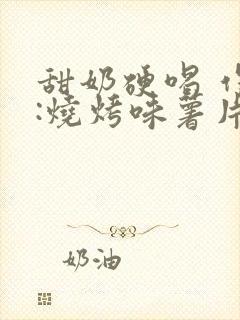 甜奶硬唱
:燒烤味薯片
奶油